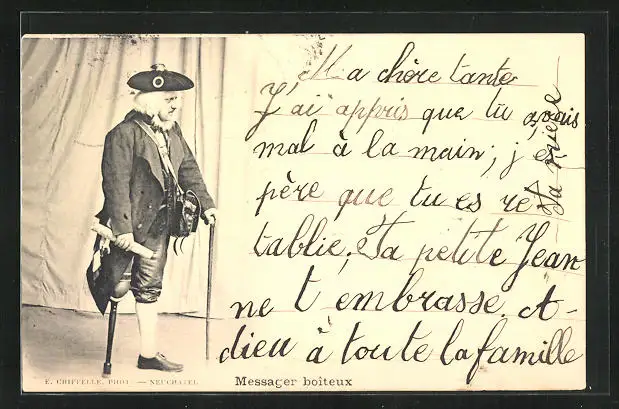 Ma chère tante
J'ai appris que tu avais
mal à la main; j'es
père que tu es re
tablie. Ta petite Jean
ne t embrasse. A-
dieu à toute la famille
E. CHIFFELLE, PHOT. — NEUCHATEL
Messager boîteux